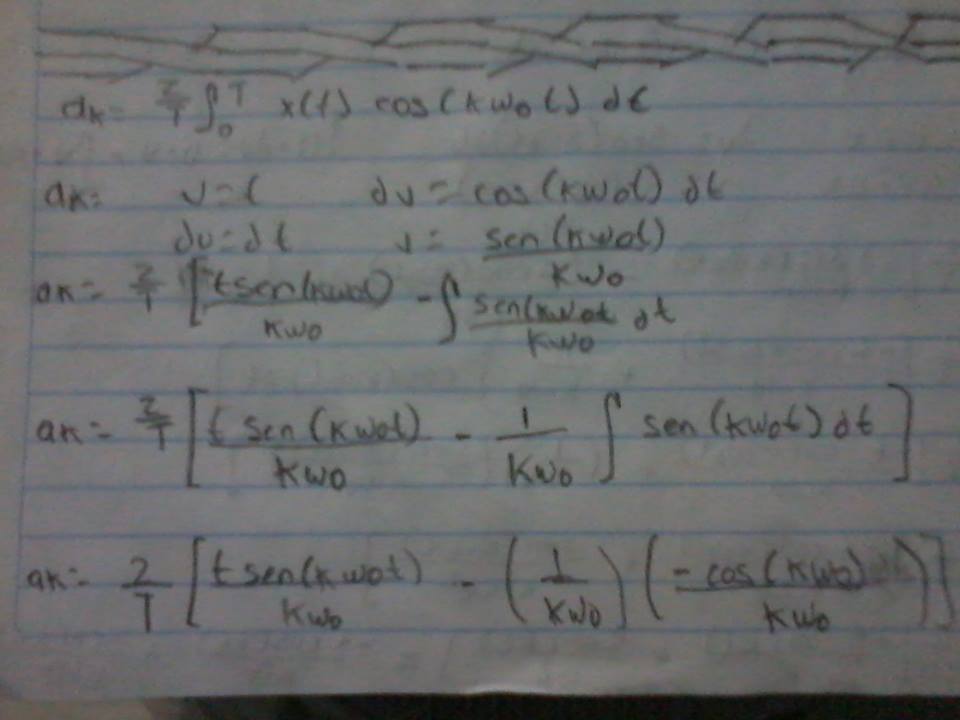 ak= 2/T ∫₀ᵀ x(t) cos(kω₀t) dt
ak= u=t dv=cos(kω₀t) dt
du=dt v= sen(kω₀t)/kω₀
ak= 2/T [ t sen(kω₀t)/kω₀ - ∫ sen(kω₀t/kω₀ dt
ak= 2/T [ t sen(kω₀t)/kω₀ - 1/kω₀ ∫ sen(kω₀t) dt ]
ak= 2/T [ t sen(kω₀t)/kω₀ - (1/kω₀) (-cos(kω₀)/kω₀) ]